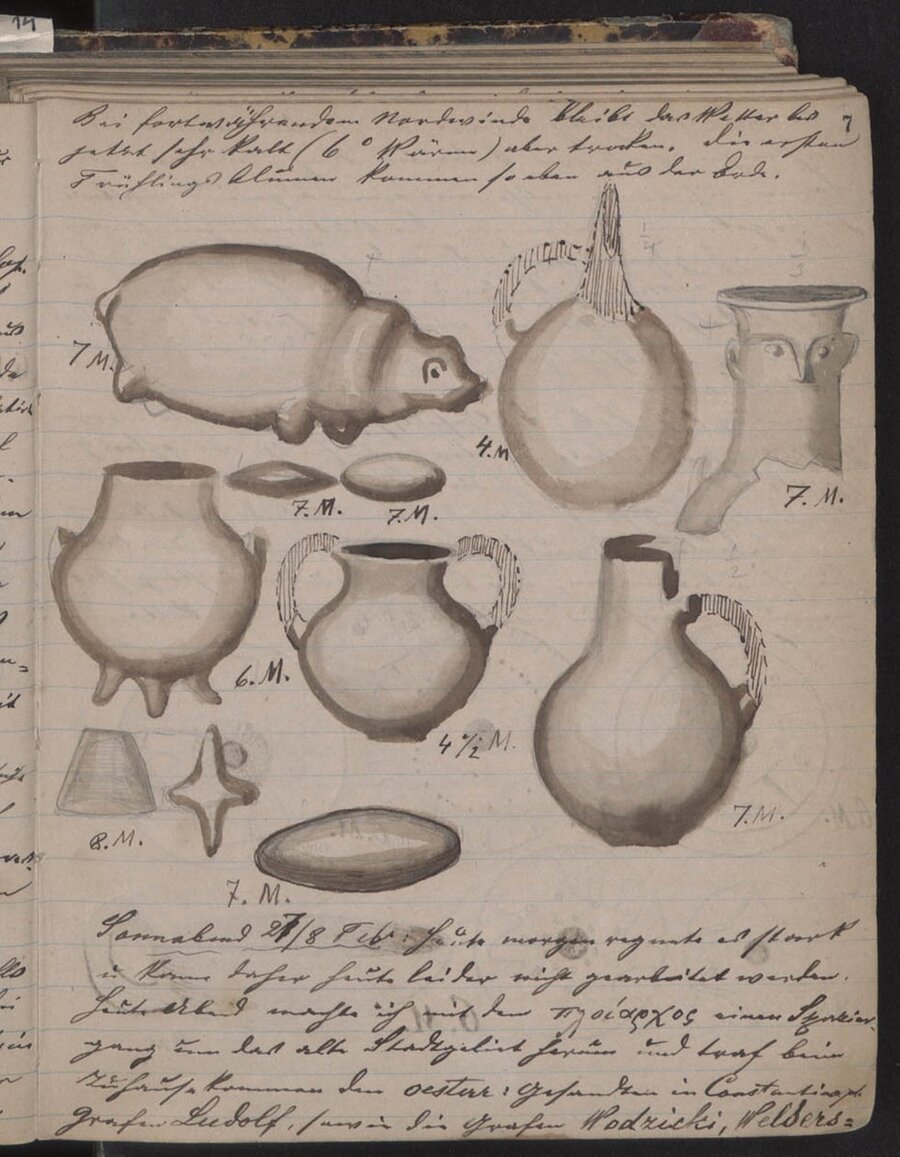 14
7
Bei fortwährendem Nordwinde bleibt das Wetter bis
jetzt sehr kalt (6° Wärme) aber trocken. Die ersten
Frühlings blumen kommen so eben aus der Erde.
1/4
1/3
7 M.
4. M
7. M.
7. M.
7. M.
1/2
6. M.
4 1/2 M.
7. M.
8. M.
7. M.
Sonnabend 27/8 Feb: Heute morgen regnete es stark
u kann daher heute leider nicht gearbeitet werden.
Heute Abend machte ich mit dem πλοίαρχος einen Spazier
gang um das alte Stadtgebiet herum und traf beim
Zuhausekommen den oestur: Gesandten in Constantinopl.
Grafen Ludolf, sowie die Grafen Wodzicki, Welsers=